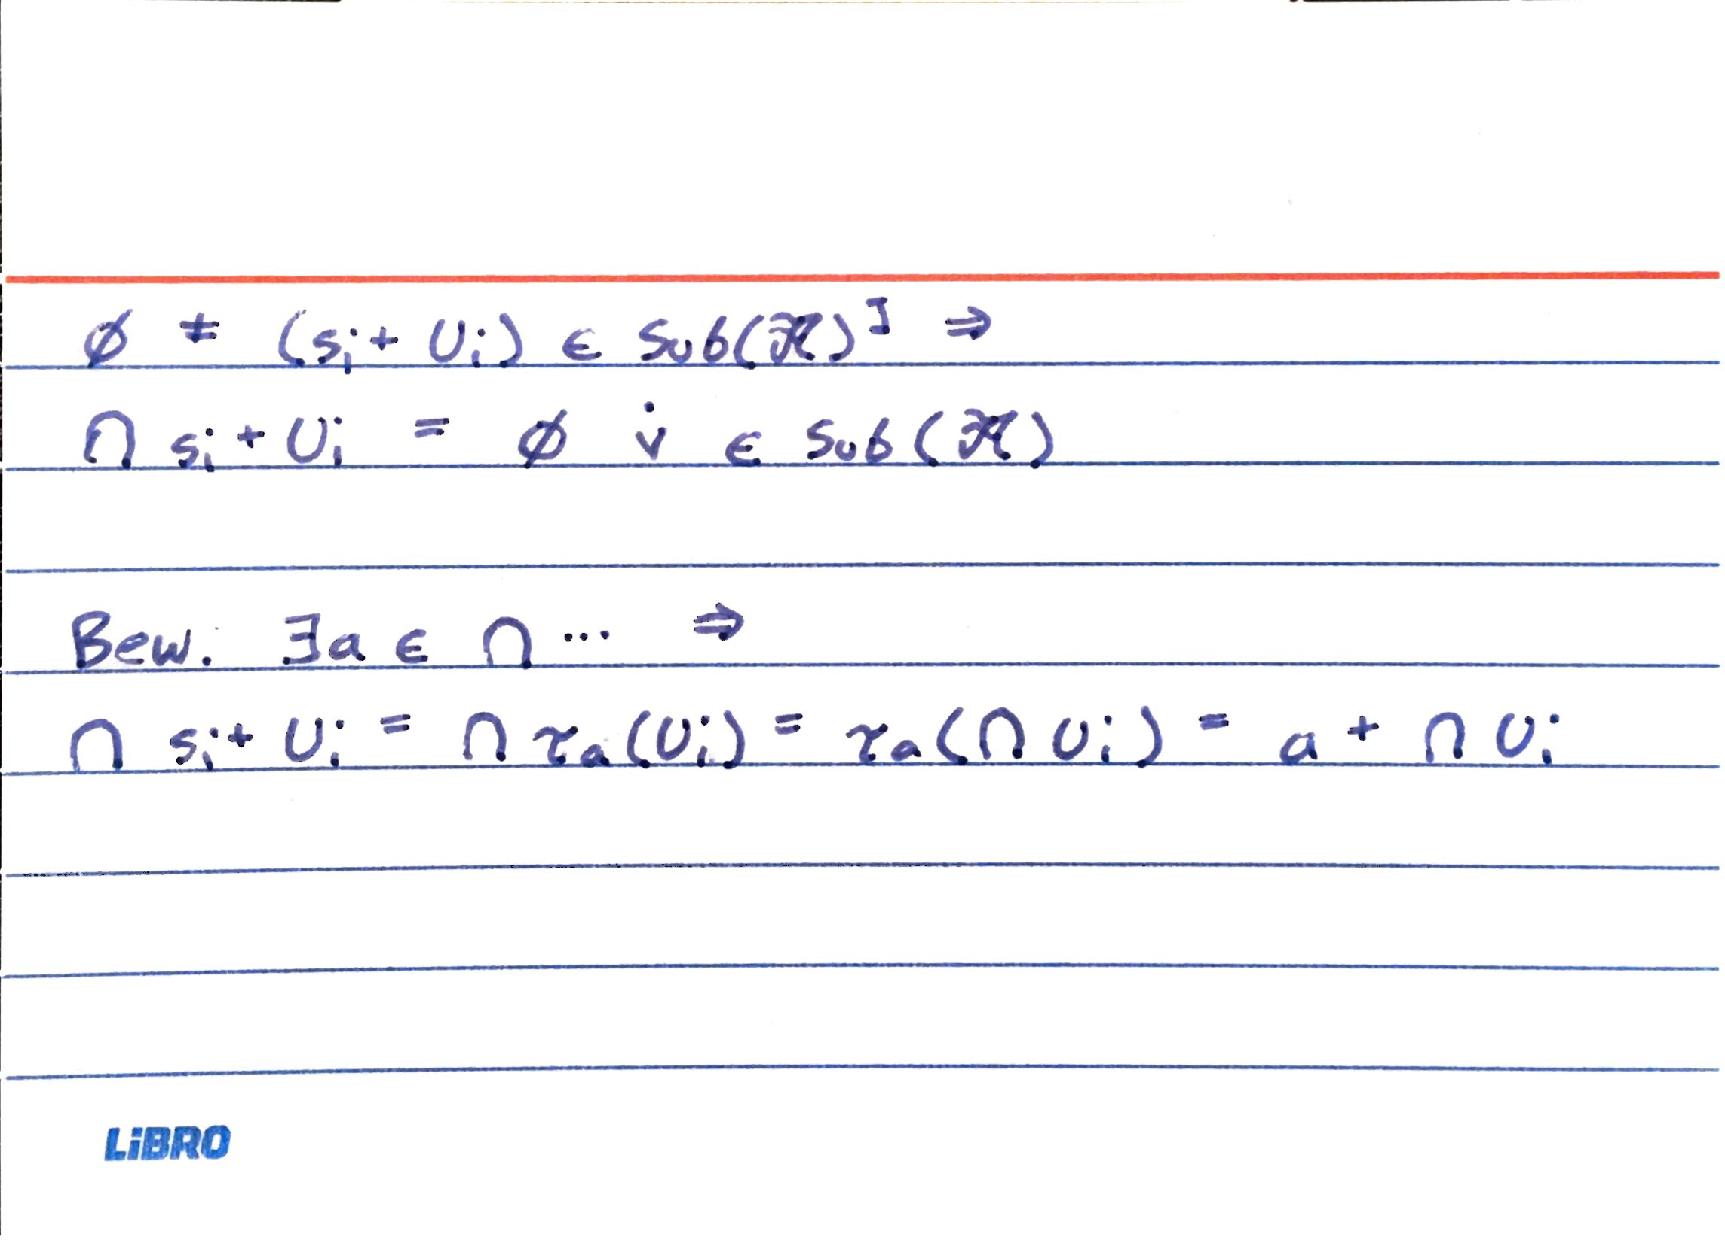 ∅ ≠ (sᵢ + Uᵢ) ∈ Sub(𝓡)ᴵ ⇒
∩ sᵢ + Uᵢ = ∅ v̇ ∈ Sub(𝓡)
Bew. ∃a ∈ ∩ ... ⇒
∩ sᵢ + Uᵢ = ∩ τₐ(Uᵢ) = τₐ(∩ Uᵢ) = a + ∩ Uᵢ
LiBRO